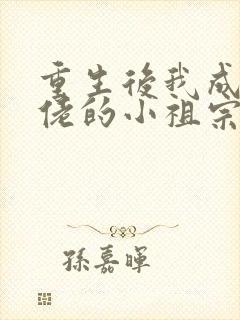 重生後我成
佬的小祖宗
孫嘉暉